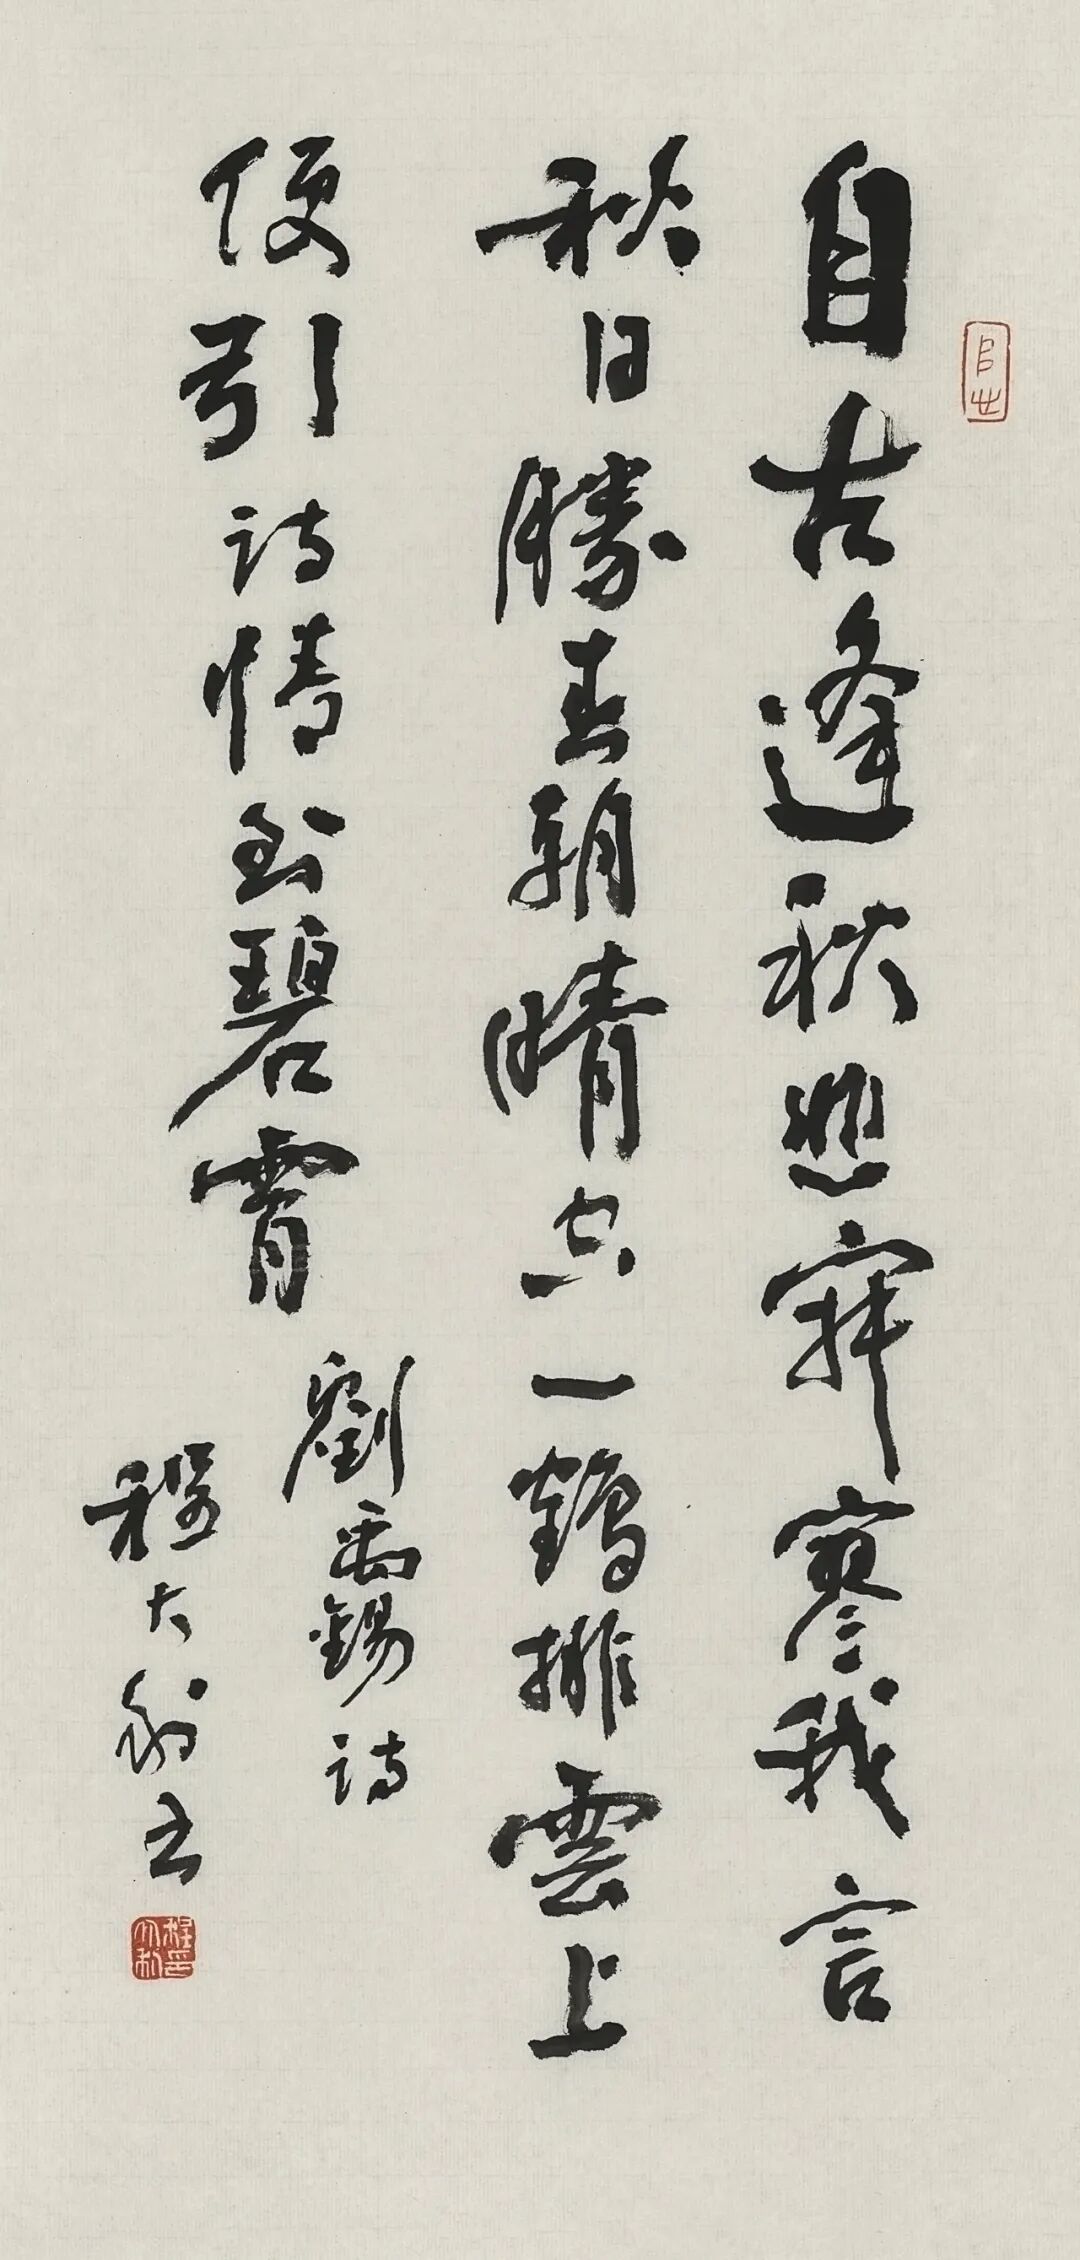 自古逢秋悲寂寥我言
秋日勝春朝晴空一鶴排雲上
便引詩情到碧霄
劉禹錫詩
程大利书
程大利印